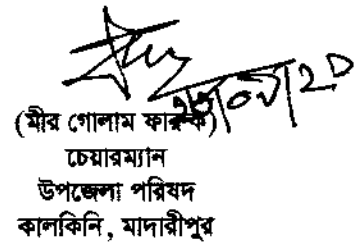 (মীর গোলাম ফারুক)
চেয়ারম্যান
উপজেলা পরিষদ
কালকিনি, মাদারীপুর